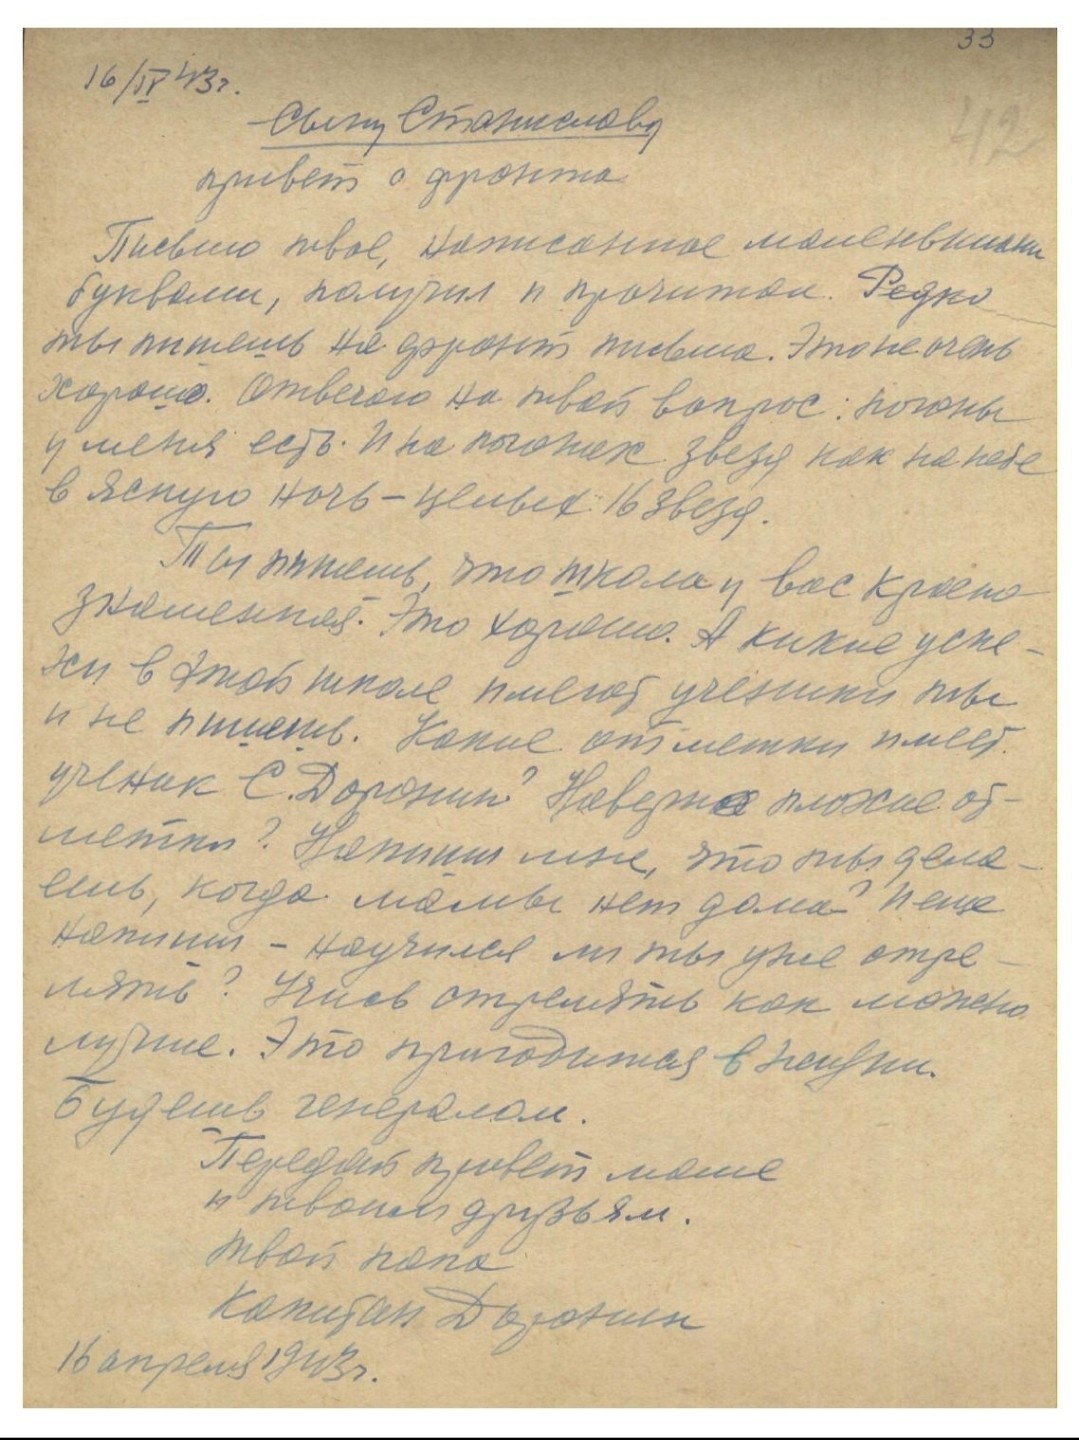 33
42
16/IV 43г.
Сыну Станиславу
привет с фронта
Письмо твое, написанное маленькими
буквами, получил и прочитал. Редко
ты пишешь на фронт письма. Это не очень
хорошо. Отвечаю на твой вопрос: погоны
у меня есть. И на погонах звезд как на небе
в ясную ночь – целых 16 звезд.
Ты пишешь, что школа у вас Красно
знаменная. Это хорошо. А какие успе-
хи в этой школе имеют ученики ты
и не пишешь. Какие отметки имеет
ученик С. Доронин? Наверное плохие от-
метки? Напиши мне, что ты дела-
ешь, когда мамы нет дома? И еще
напиши – научился ли ты уже стре-
лять? Учись стрелять как можно
лучше. Это пригодится в жизни.
Будешь генералом.
Передай привет маме
и твоим друзьям.
Твой папа
Капитан Доронин
16 апреля 1943г.